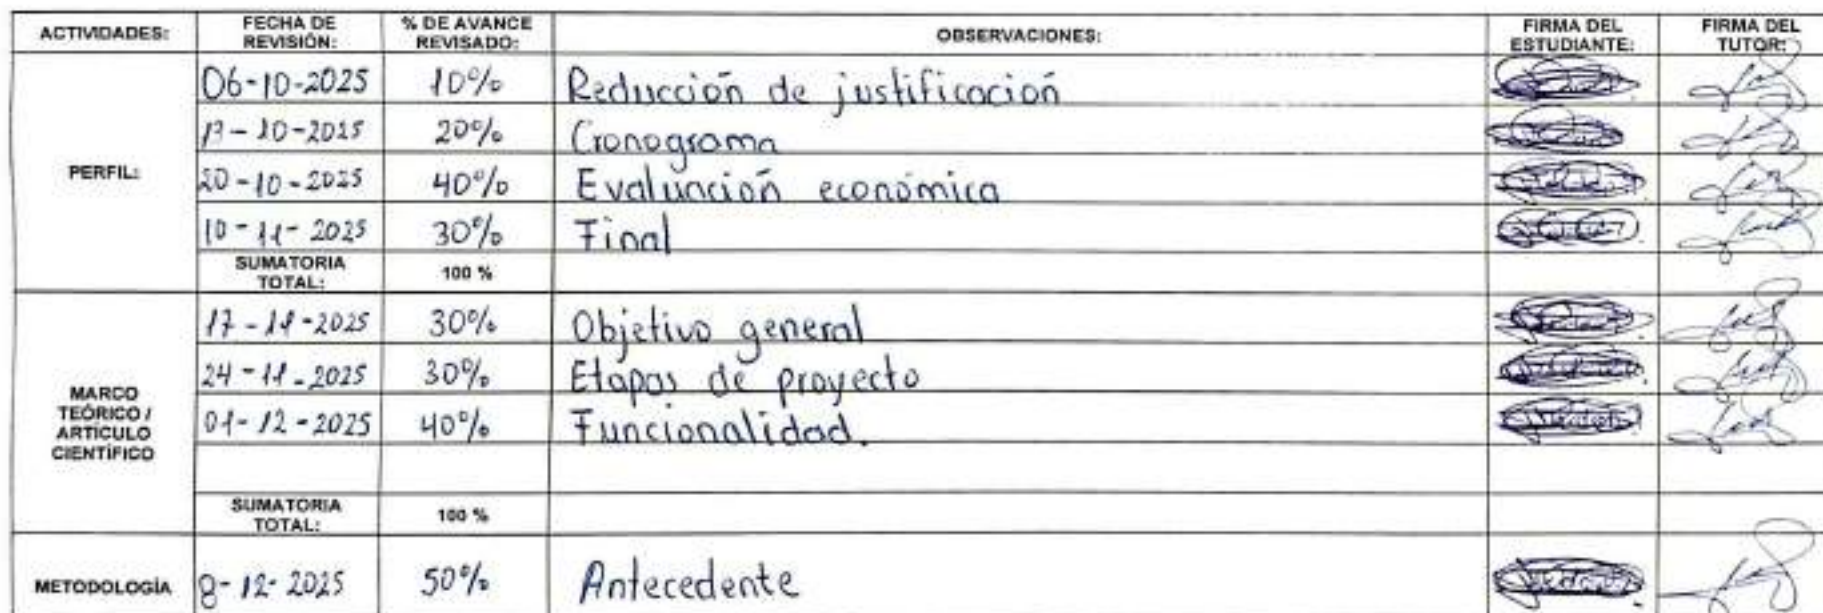 ACTIVIDADES: FECHA DE REVISIÓN: % DE AVANCE REVISADO: OBSERVACIONES: FIRMA DEL ESTUDIANTE: FIRMA DEL TUTOR:
PERFIL:
06-10-2025 10% Reducción de justificación
13-10-2025 20% Cronograma
20-10-2025 40% Evaluación económica
10-11-2025 30% Final
SUMATORIA TOTAL: 100 %
MARCO TEÓRICO / ARTÍCULO CIENTÍFICO
17-11-2025 30% Objetivo general
24-11-2025 30% Etapas de proyecto
01-12-2025 40% Funcionalidad.
SUMATORIA TOTAL: 100 %
METODOLOGÍA 8-12-2025 50% Antecedente